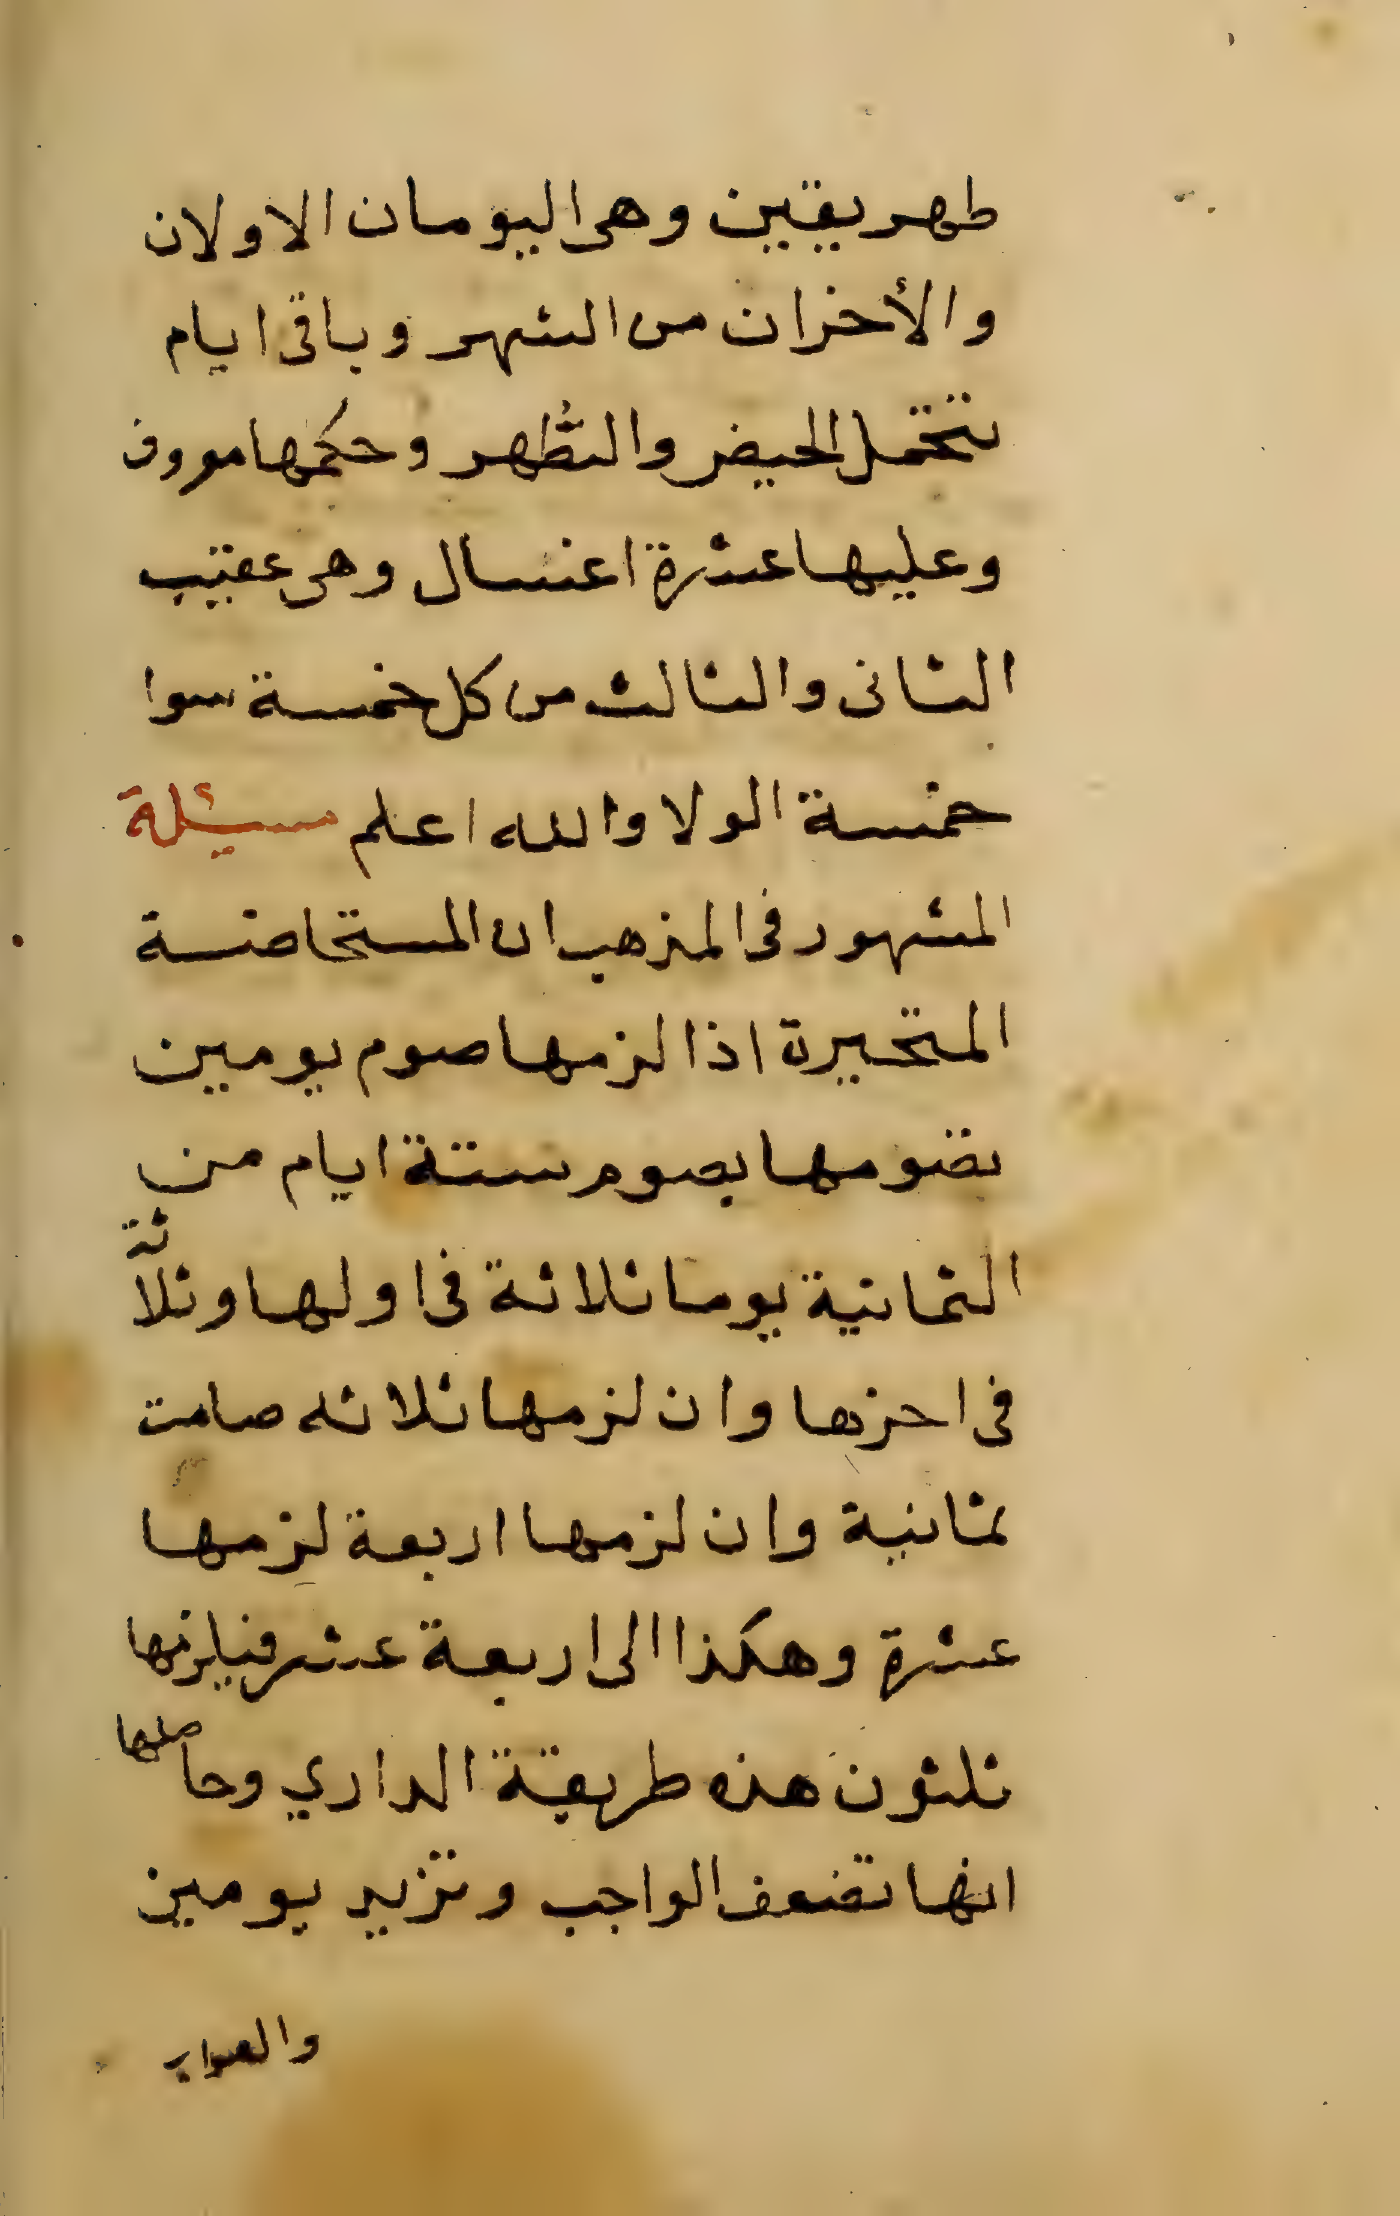 طهر يقين وهى اليومان الاولان
والأخران من الشهر وباقى ايام
تحتمل الحيض والتطهر وحكمها معروف
وعليها عشرة اغتسال وهى عقيب
الثانى والثالث من كل خمسة سوا
خمسة الولا والله اعلم مسئلة
المشهور فى المذهب ان المستحاضة
المتحيرة اذا لزمها صوم يومين
تصومها بصوم ستة ايام من
الثمانية يوما ثلاثة فى اولها وثلاثة
فى اخرها وان لزمها ثلاثه صامت
ثمانية وان لزمها اربعة لزمها
عشرة وهكذا الى اربعة عشر فيلزمها
ثلثون هذه طريقة الداري وحاصلها
انها تضعف الواجب وتزيد يومين
والصواب